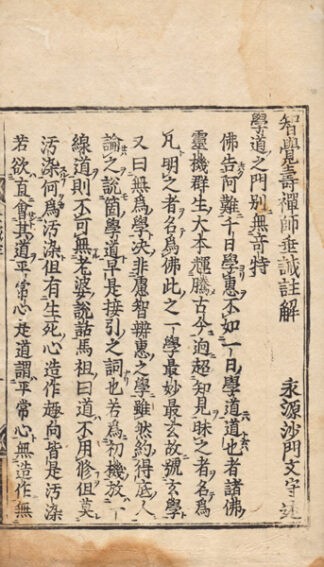 智覺壽禪師垂誡註解
永源沙門文守述
學道之門別無奇特
佛告阿難千日學惠不如一日學道道也者諸佛
靈機群生大本輝騰古今迥超知見昧之者名爲
凡明之者名爲佛此之一學最妙最玄故號玄學
又曰無爲學决非慮智辨惠之學雖然約得底人
論之説箇學道早是接引之詞也若爲初機放一
線道則不可無老婆説話馬祖曰道不用修但莫
汚染何爲汚染但有生死心造作趣向皆是汚染
若欲直會其道平常心是道謂平常心無造作無